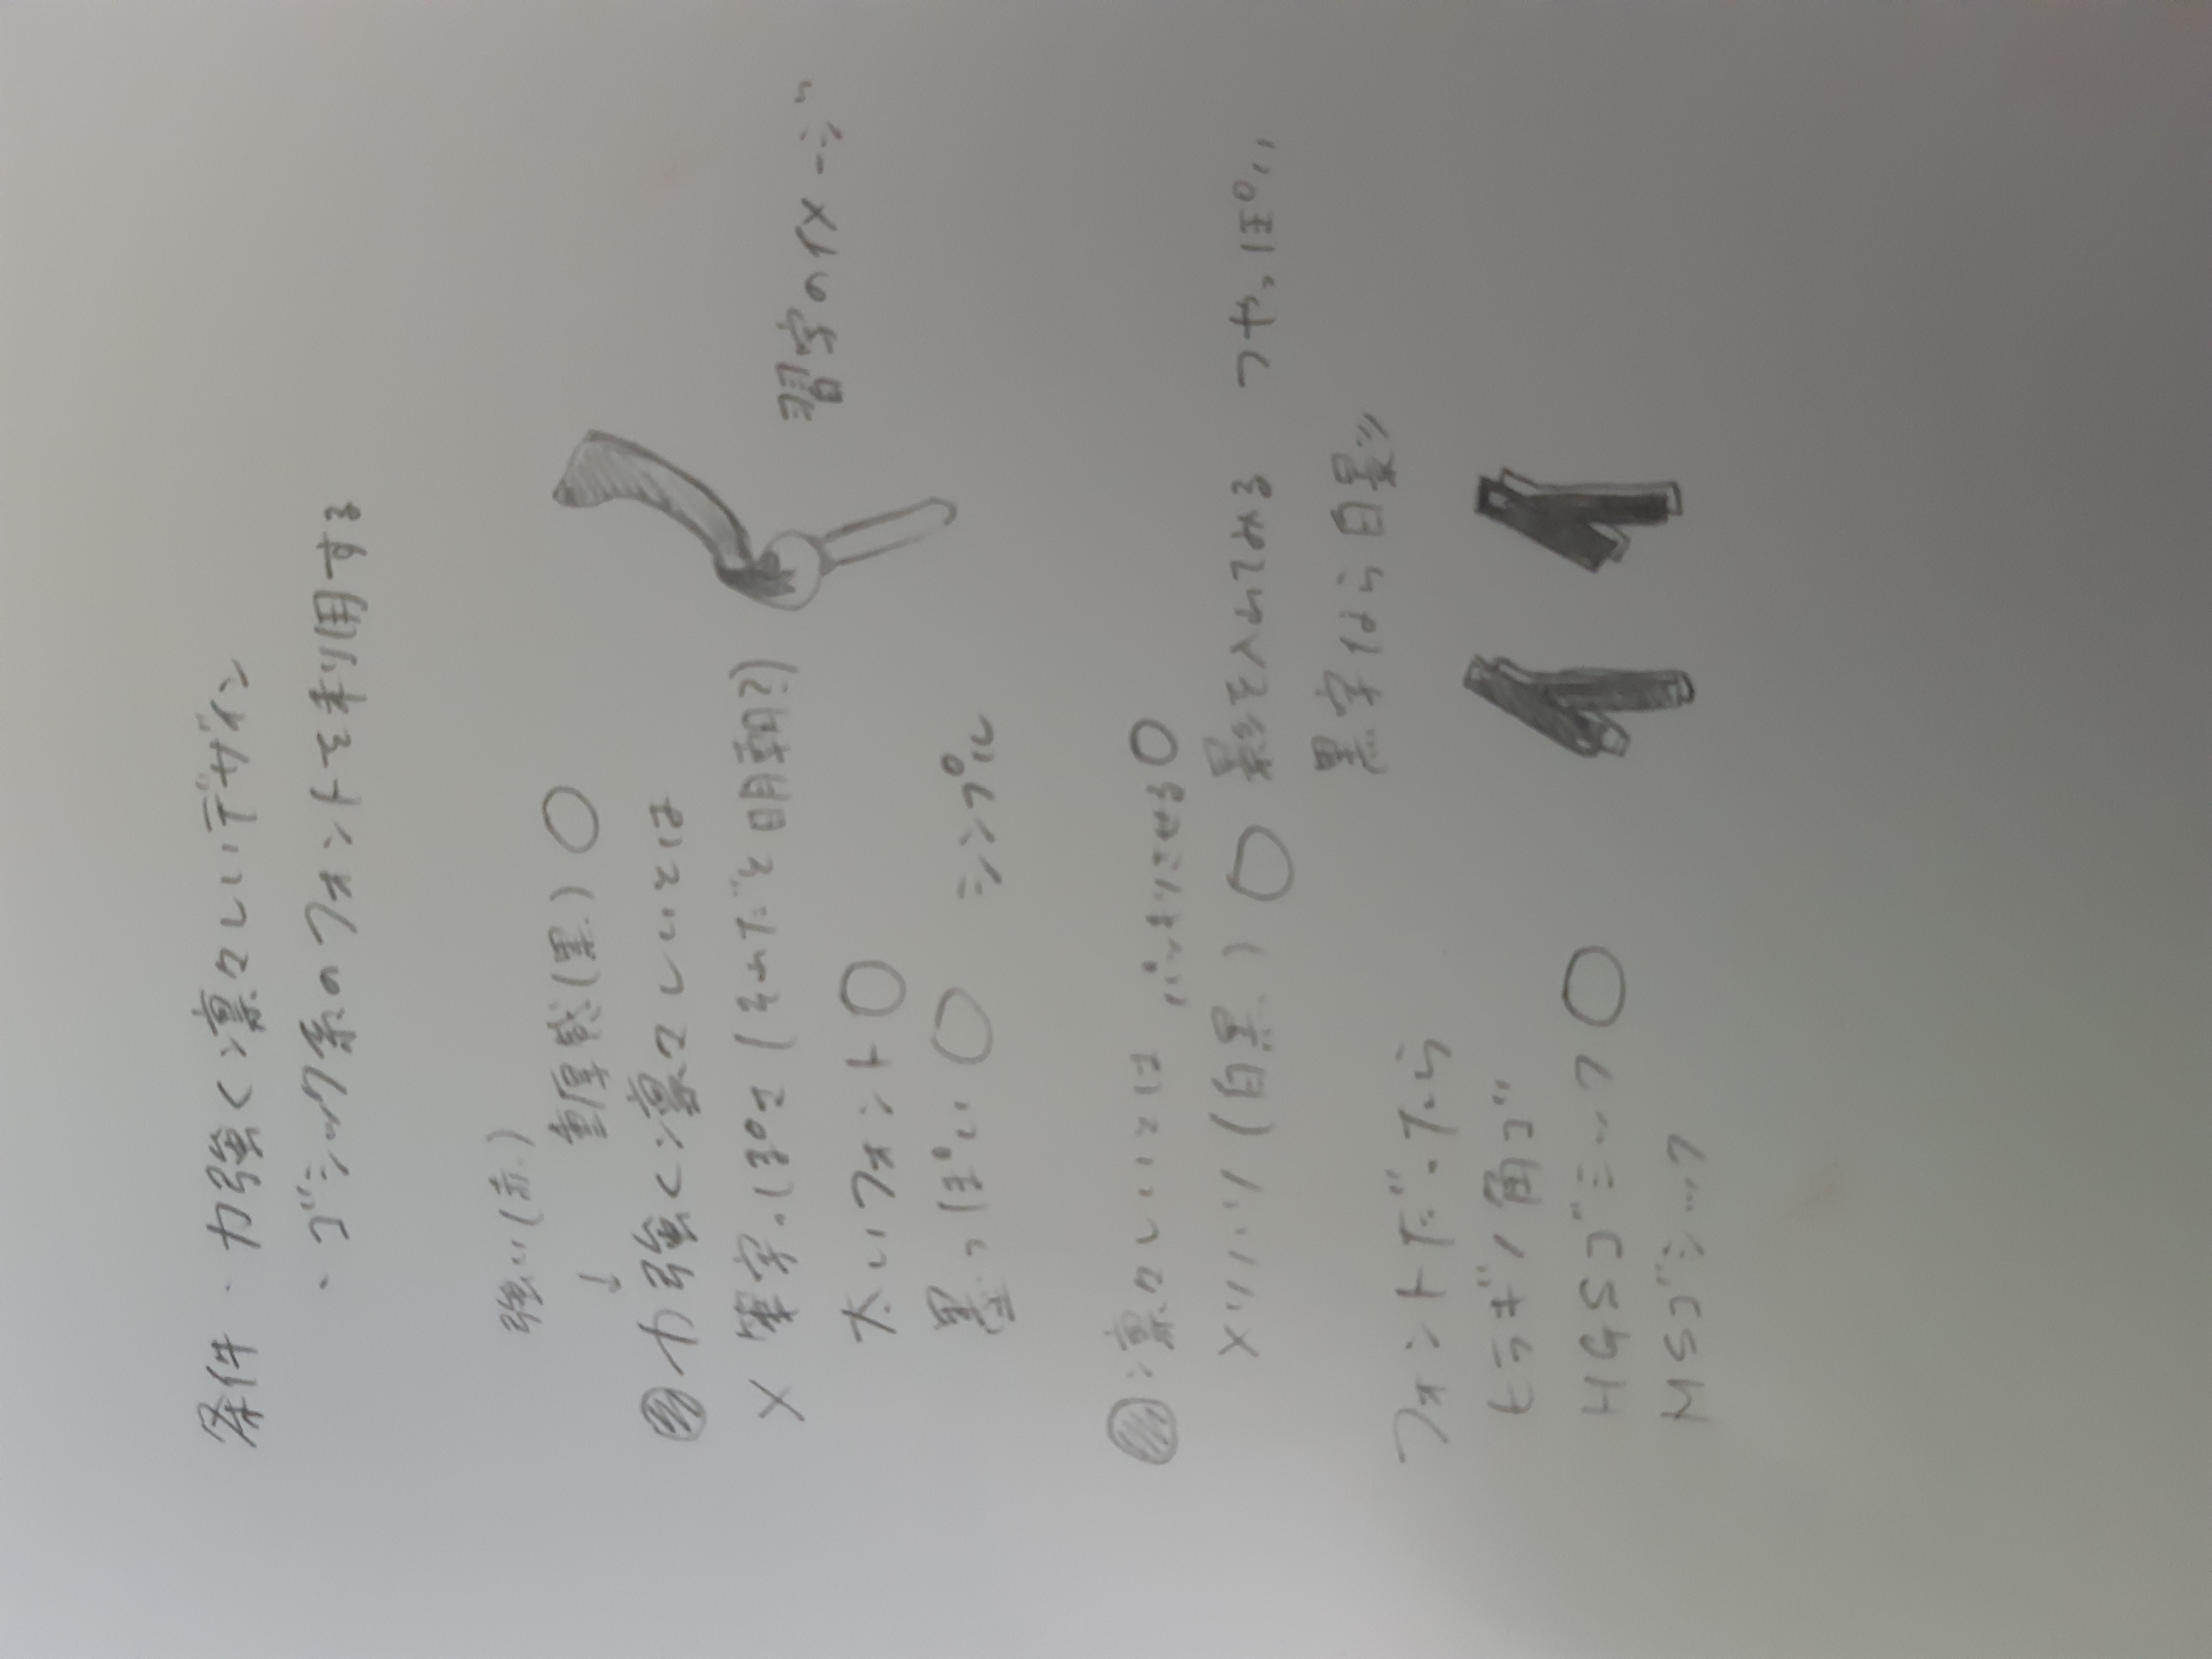 条件 ・力強く凛々しいデザイン
・ゴシック系のフォントを利用する
強い(赤)
↓ 重厚感(黒) ○
力強く凛々しいとは
× 筆字っぽさ(それだと明朝?)
太いフォント ○
墨っぽい ○ シンプル
習字のイメージ
凛々しいとは パッキリさせる ○
メリハリ(白黒) ○ 影を入れてみる つやっぽい
黒字なら白影
フォントだったら
ヒラギノ角ゴ
HGSゴシック ○
MSゴシック
1 1